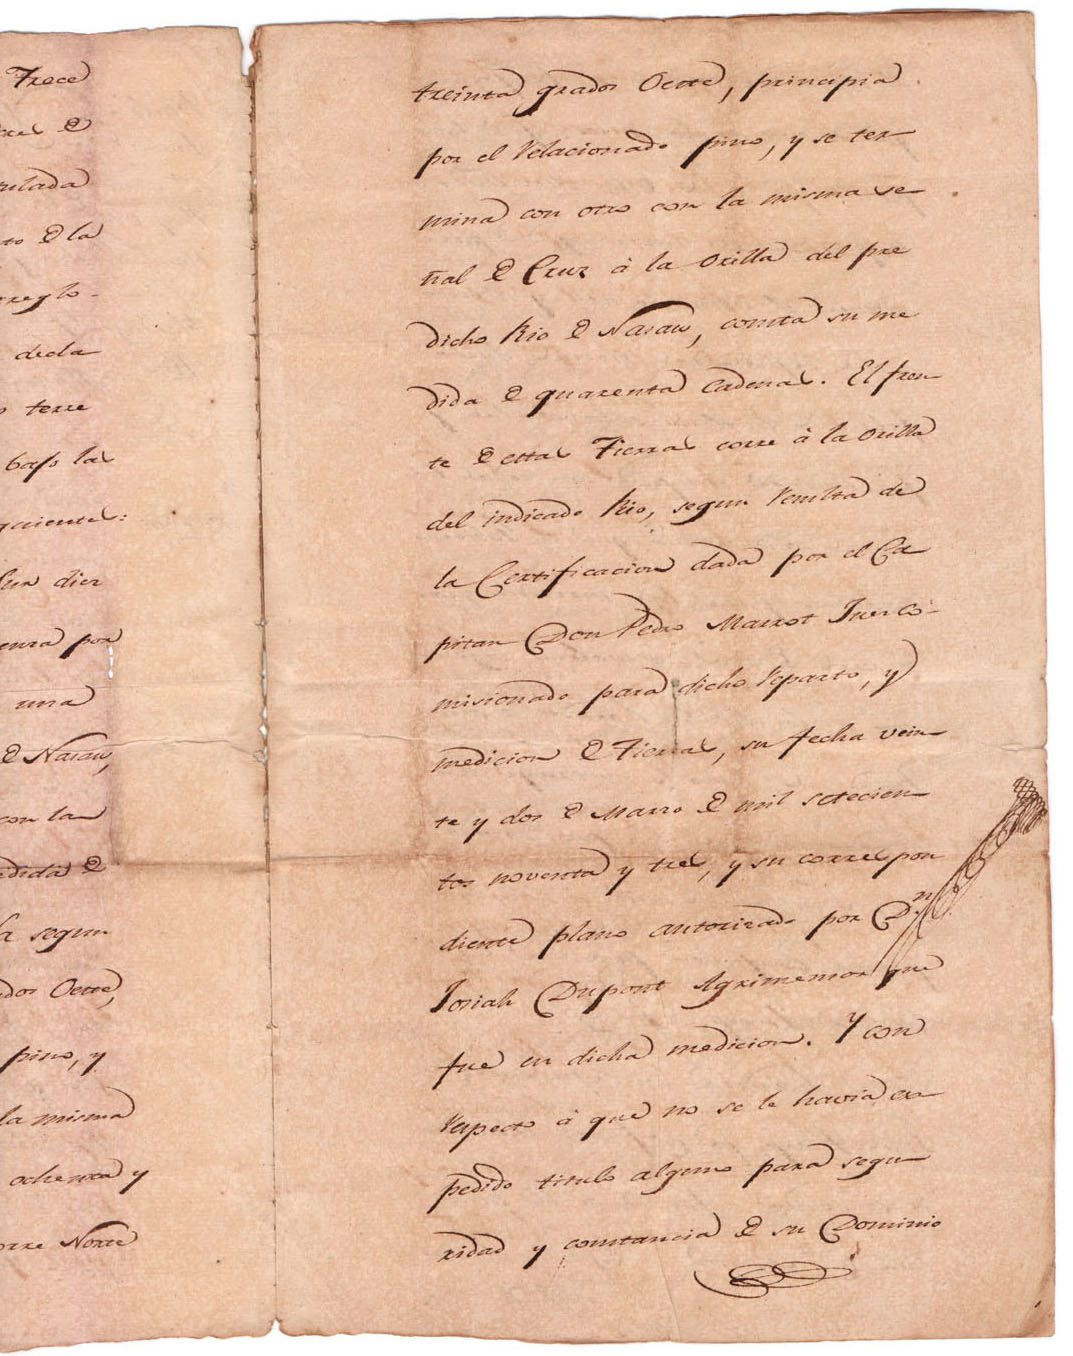 Trece
tulada
to de la
reglo-
decla
terre
baxo las
quientes:
diez
por
una
de Nasau,
con la
medida de
segun
Oeste,
pino, y
la misma
ochenta y
Norte
treinta grados Oeste, principia
por el relacionado pino, y se ter
mina con otro con la misma se
ñal de Cruz à la orilla del pre
dicho Rio de Nasau, consta su me
dida de quarenta Cadenas. El fren
te de estas Tierras corre à la orilla
del indicado Rio, segun resulta de
la Certificacion dada por el Ca
pitan Don Pedro Marrot Juez co-
misionado para dicho reparto, y
medicion de Tierras, su fecha vein
te y dos de Marzo de mil setecien
tos noventa y tres, y su correspon
diente plano autorizado por Dn.
Josiah Dupont Agrimensor que
fue en dicha medicion. Y con
respecto à que no se le havia ex
pedido titulo alguno para segu
ridad y constancia de su Dominio